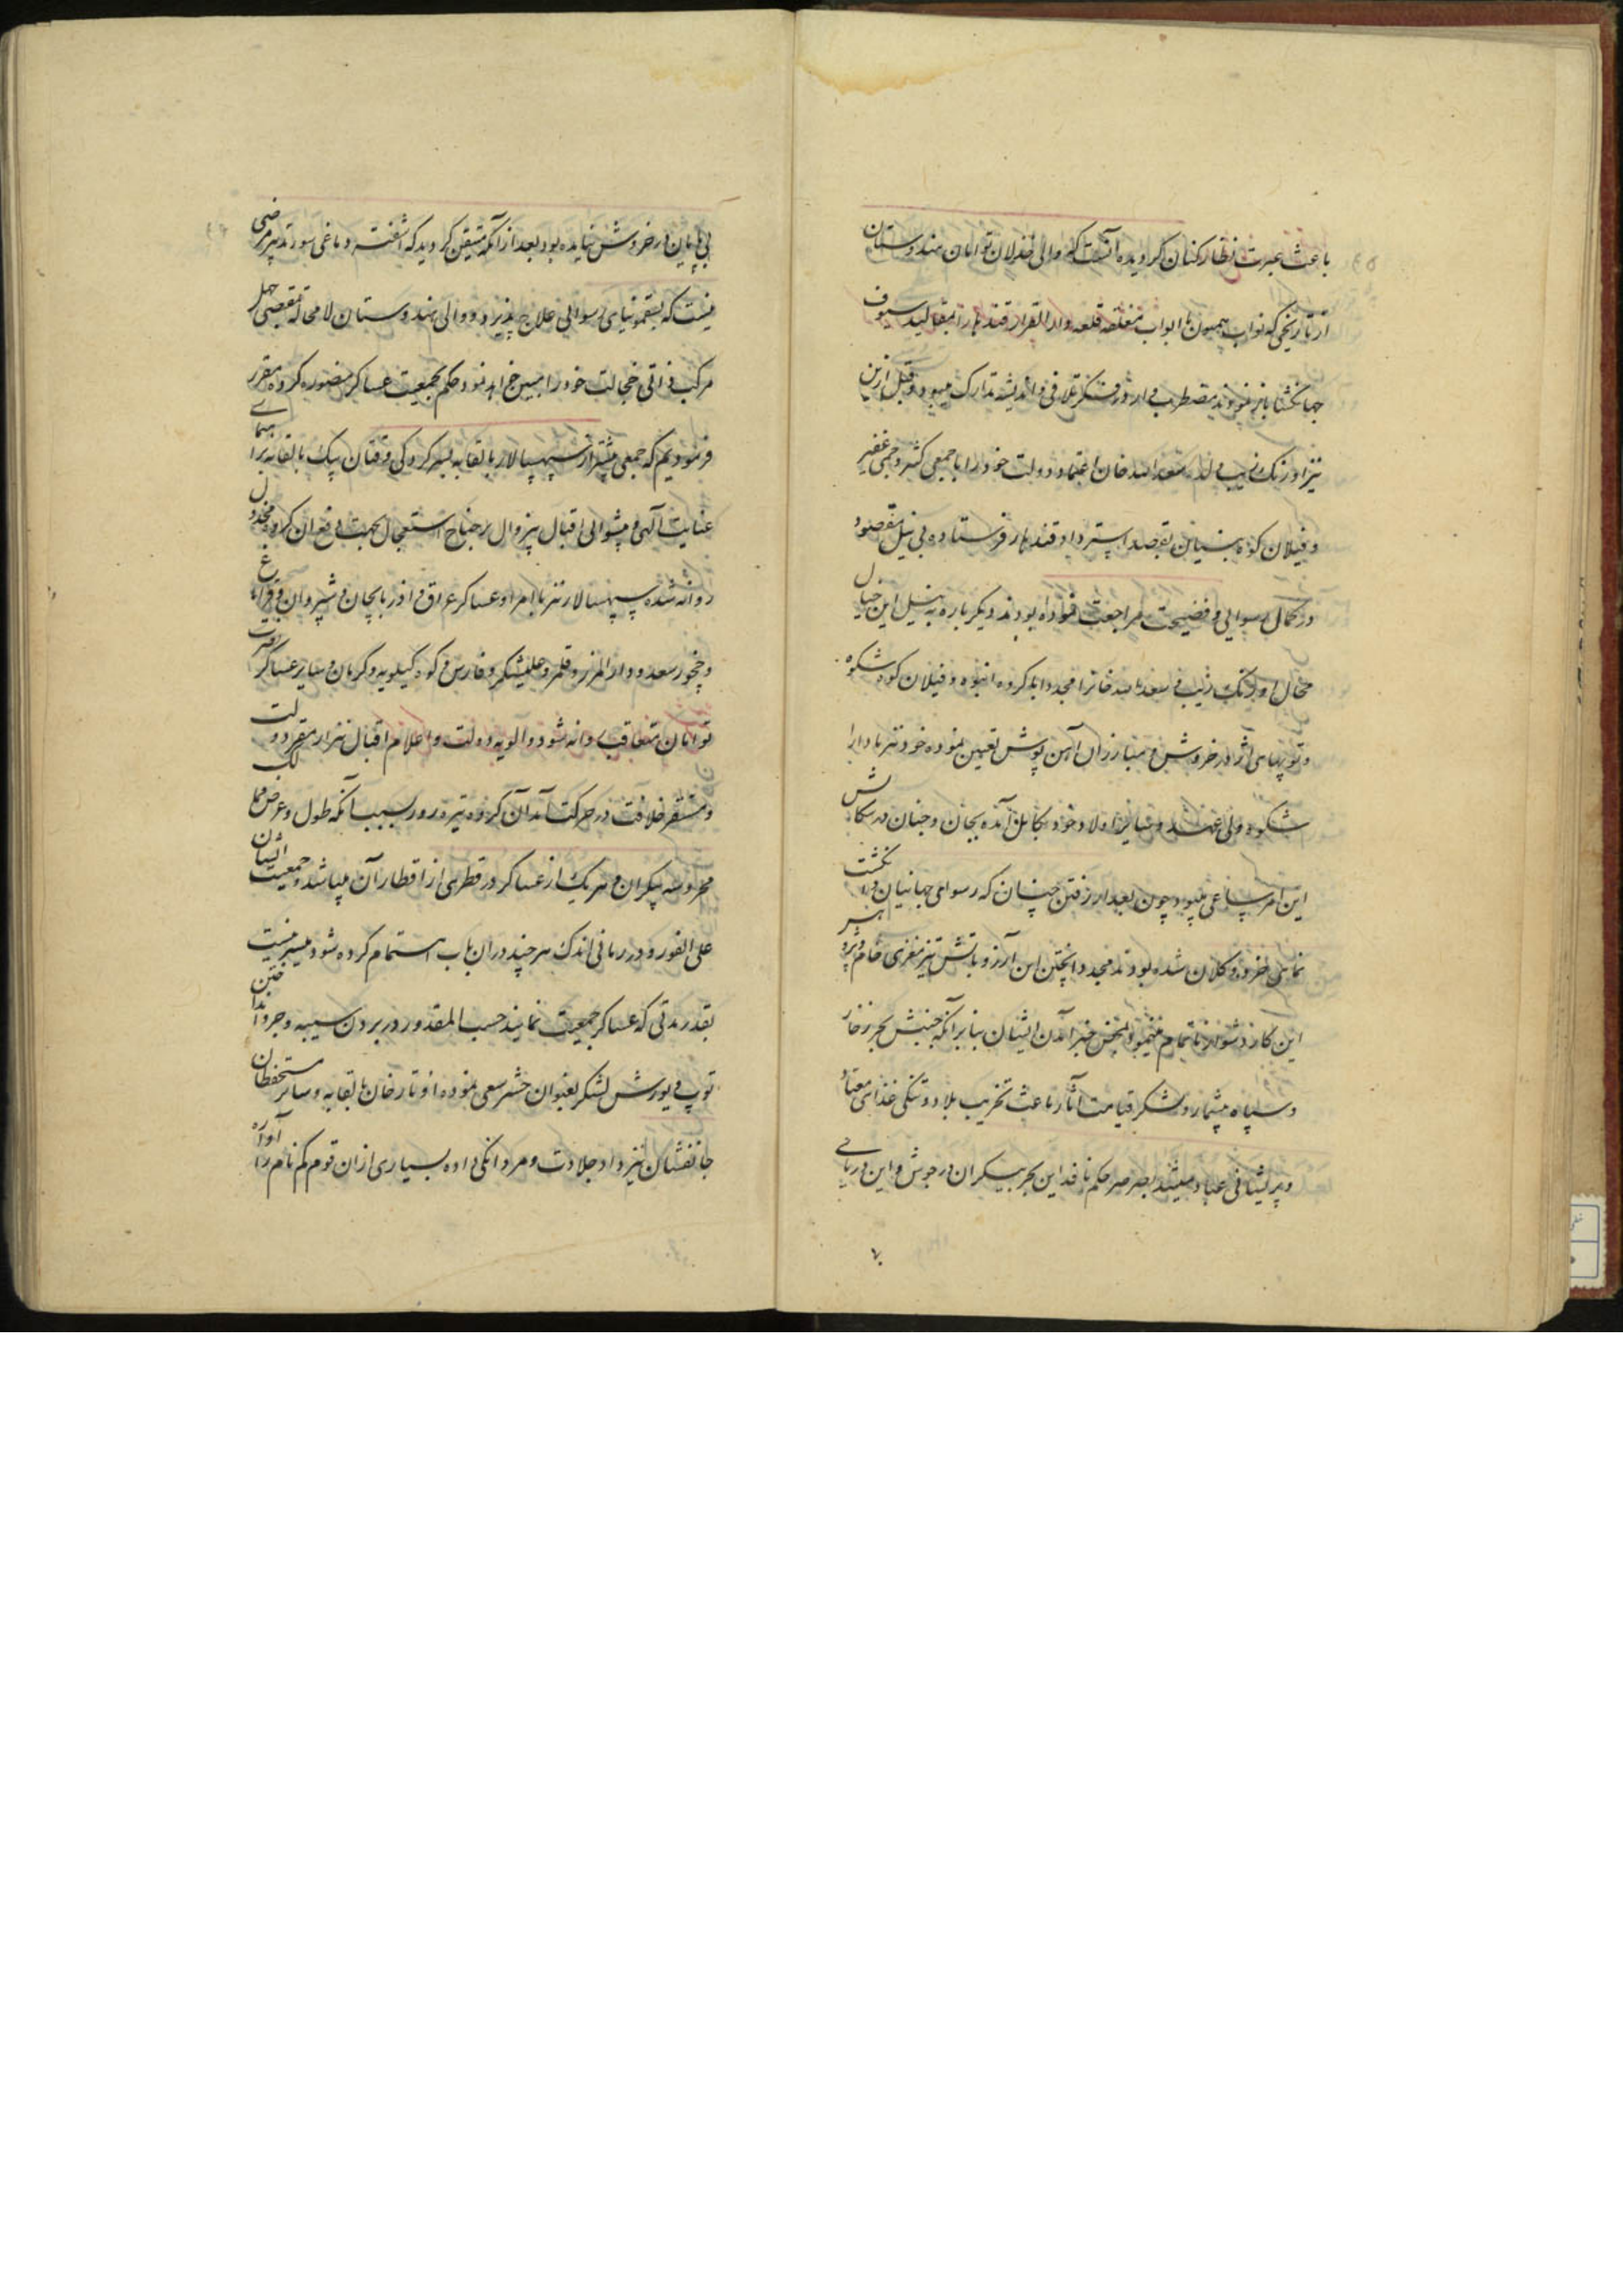 باعث عبرت نظارکنان گردیده آنست که والی خذلان توامان هندوستان
از تاریخی که نواب همیون ما ابواب مغلقه قلعه دار القرار قندهار را بمقالید سیوف
جهانگشا باز نمودند مضطرب وار در فکر تلافی و اندیشه تدارک میبود و قبل ازین
نیز اورنک زیب ولد و سعد الله خان اعتماد دولت خود را با جمعی کثیر و جمی غفیر
و فیلان کوه بنیان بقصد استرداد قندهار فرستاده بی نیل مقصود
در کمال رسوایی و فضیحت مراجعت نموده بودند دیگر باره به نیل این خیال
محال اورنک زیب و سعد الله خانرا مجددا با کروه انبوه و فیلان کوه شکوه
و توپهای اژدر خروش و مبارزان آهن پوش تعیین نموده خود نیز با دارا
شکوه ولی عهد و سایر اولاد خود بکابل آمده بجان و جنان در سکالش
این امر ساعی میبود چون بعد از رفتن چنان که رسوای جهانیان و انکشت
نمای خرد و کلان شده بودند مجددا پختن این آرزو باتش تیز مغزی خام و نیز
این کار دشوار ناتمام مینمود بمحض خبر آمدن ایشان بنابر آنکه جنبش بحر زخار
و سپاه بیشمار و لشکر قیامت آثار باعث تخریب بلاد و تنکی غذای معتاد
و پریشانی عباد میشد بصرصر حکم نافذ این بحر بیکران در جوش و این دریای
بی پایان در خروش نیامده بود بعد از آنکه متیقن کردید که آشفته دماغی سودا نه مرضی
نیست که بسقمونیای رسوایی علاج پذیرد و والی هندوستان لا محاله بمقتضی جهل
مرکب ذاتی خجالت خود را بسیج خواهد نمود حکم بجمعیت عساکر منصوره کرده مقرر
فرمودیم که جمعی پیشتر از سپهسالار بالقابه بسرکردکی قرقتان بیک بالقابه برهنمای
عنایت الهی و پیشوایی اقبال بیزوال بر جناح استعجال بجهت دفع ان کروه مخذول
روانه شده سپهسالار نیز با امرا و عساکر عراق و آذربایجان و شیروان و قراباغ
و چخور سعد و دار المرز و قلمرو علیشکر و فارس و کوه کیلویه و کرمان و سایر عساکر نصرت
توامان متعاقب روانه شود و الویه دولت و اعلام اقبال نیز از مقر دولت
و مستقر خلافت در حرکت آمد آن کروه تیره روز بسبب آنکه طول و عرض ممالک
محروسه بیکران و هر یک از عساکر در قطری از اقطار آن میباشد و جمعیت ایشان
علی الفور و در زمانی اندک هر چند دران باب اهتمام کرده شود میسر نیست
بقدر مدتی که عساکر جمعیت نمایند حسب المقدور در بردن سیبه و جر و انداختن
توپ و یورش لشکر بعنوان حشر سعی نموده اوتار خان بالقابه و سایر مستحفظان
جانفشان نیز داد جلادت و مردانکی داده بسیاری از ان قوم کم نام را آواره